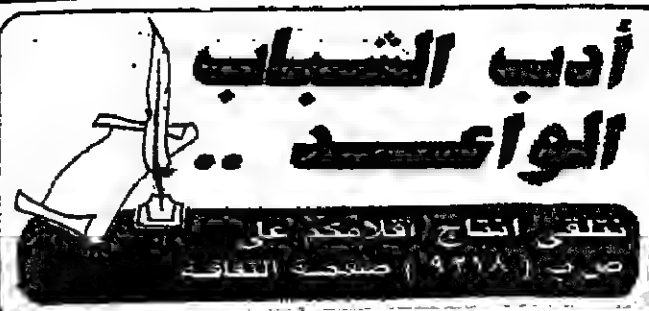 أدب الشباب
الواعد ..
نتلقى انتاج اقلامكم على
ص ب ( ٩٢١٨ ) صفحة الثقافة